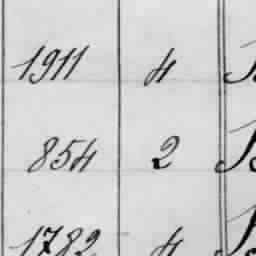 1911 4
854 2
1782 4